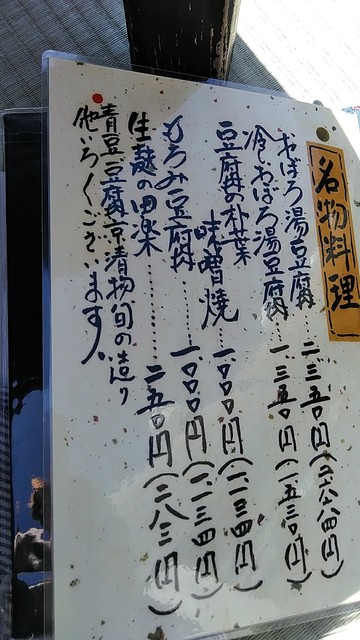 名物料理
おぼろ湯豆腐……二三五〇円(二六六四円)
冷しおぼろ湯豆腐…一三五〇円(一五三〇円)
豆腐の朴葉
味噌焼…一〇〇〇円(一一三四円)
もろみ豆腐………一〇〇〇円(一一三四円)
生麩の田楽………二五〇円(二八三円)
青豆豆腐京漬物旬の造り
他いろ〱ございます。